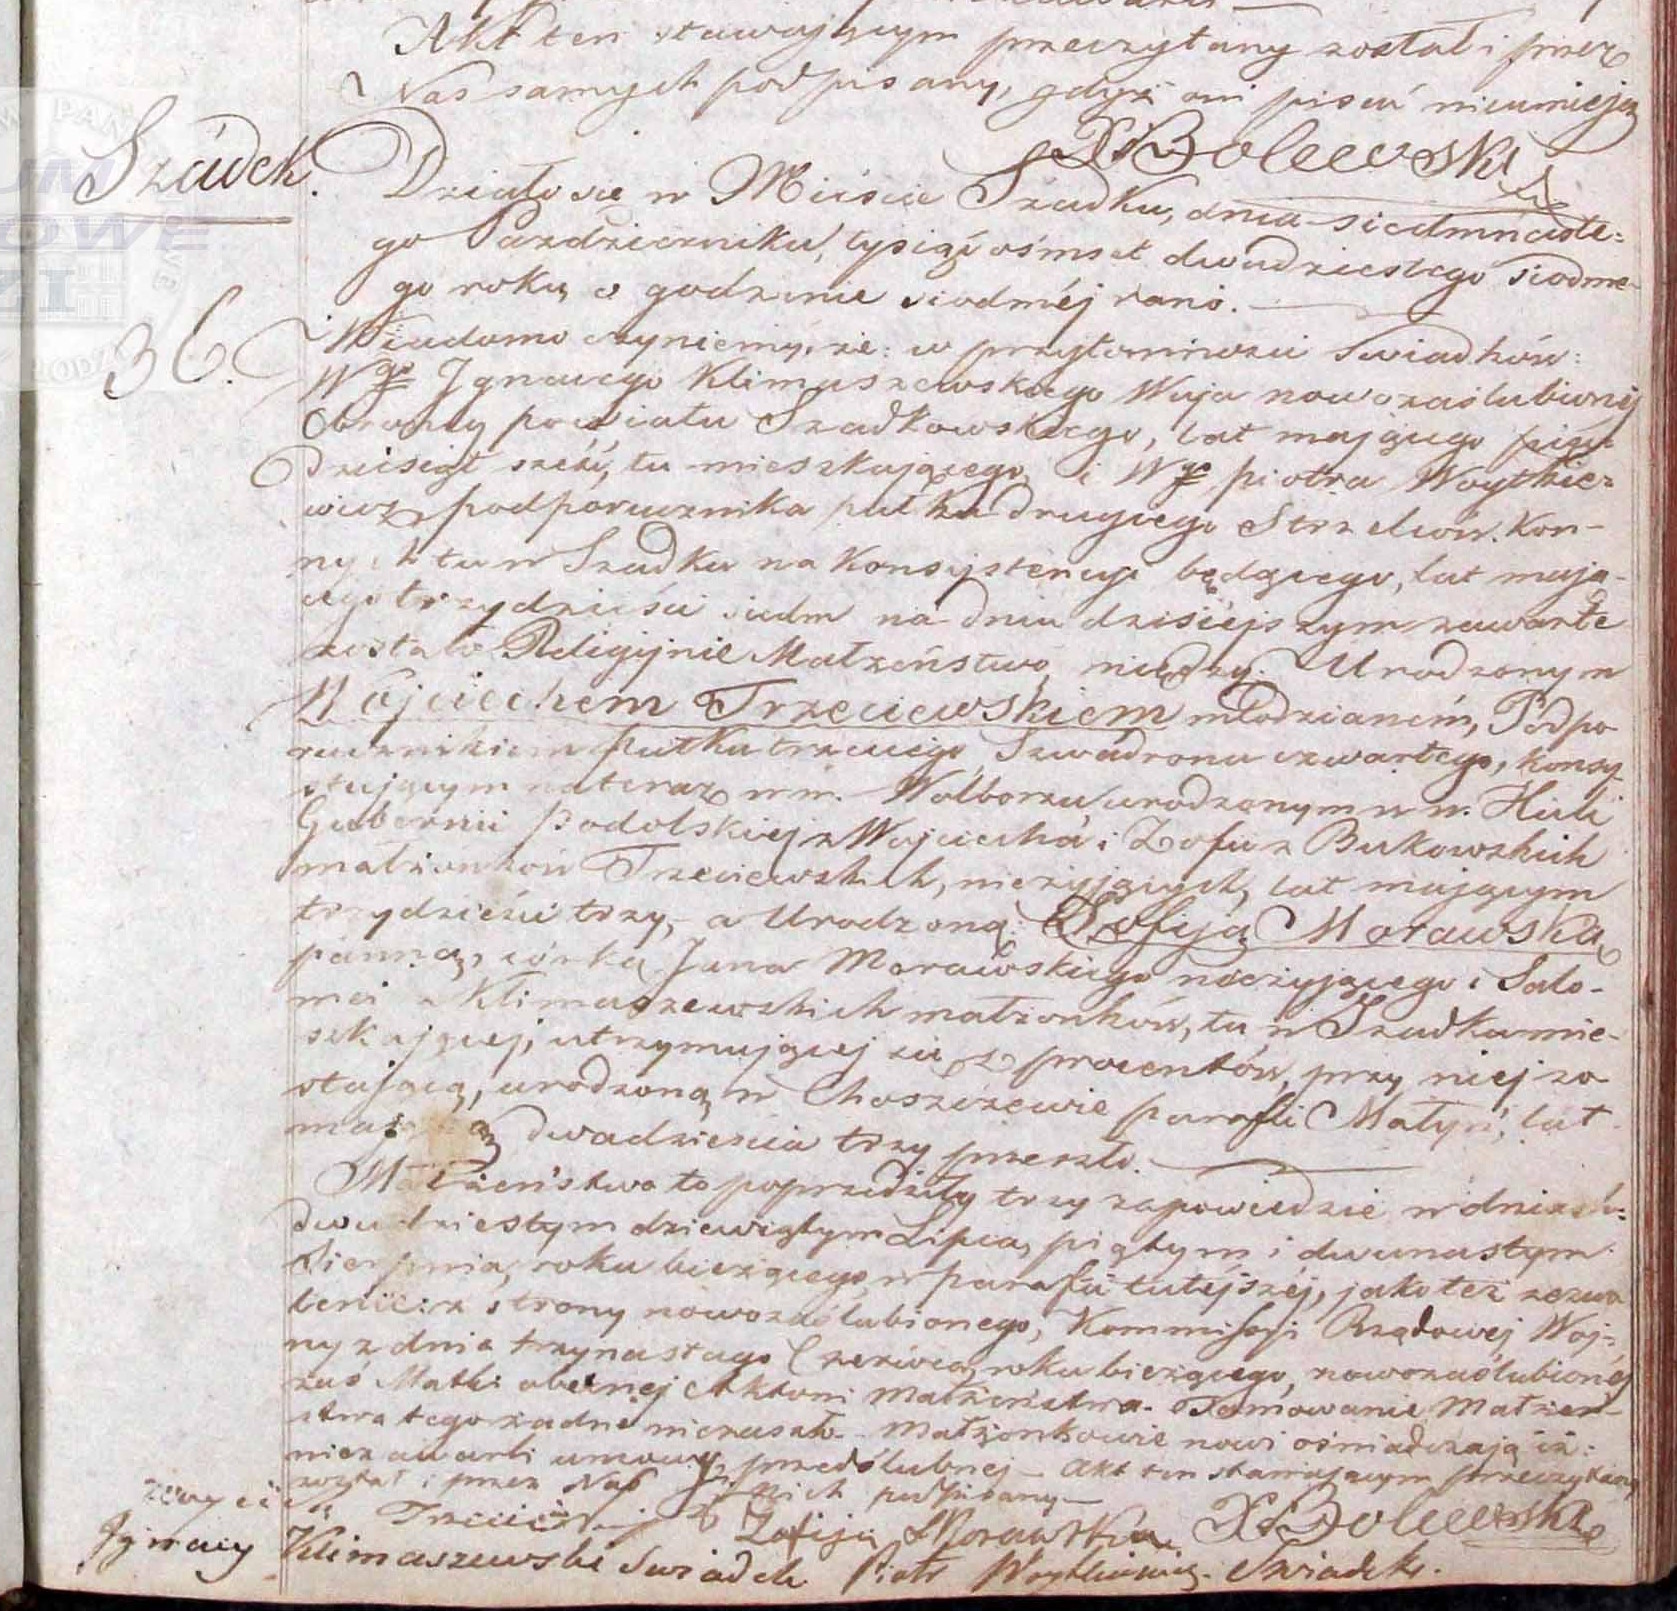 Akt ten stawającym przeczytany został i przez
Nas samych podpisany, gdyż oni pisać nieumieją
X Bolcewski
Szadek.
Działo się w Mieście Szadku, dnia siedmnaste-
go Pazdziernika, tysiąc ośmset dwudziestego siodme-
go roku, o godzinie siodméj rano.
36.
Wiadomo czyniemy, że: w przytomności Swiadków:
Wgo Ignacego Klimaszewskiego Wuja nowozaślubionéj
Obrońcy powiatu Szadkowskiego, lat mającego pięć-
dziesiąt sześć, tu mieszkającego, i Wgo Piotra Woytkie-
wicz podporucznika pułku drugiego Strzelców Kon-
nych tu w Szadku na Konsystencyi będącego, lat mają-
cego trzydzieści siedm na dniu dzisiejszym zawarte
zostało Religijnie Małżeństwo, między: Urodzonym
Wojciechem Trzeciewskiem młodzianem, Podpo
rucznikiem pułku trzeciego Szwadronu czwartego, konsy
stującym na teraz w m. Wolborzu, urodzonym w w. Huli
Gubernii Podolskiej z Wojciecha i Zofii z Bukowskich
małżonków Trzeciewskich, nieżyjących, lat mającym
trzydzieści trzy, a Urodzoną: Zofiją Morawską
panną, córką Jana Morawskiego nieżyjącego i Salo-
mei z Klimaszewskich małżonków, tu w Szadku mie-
szkającej, utrzymującej się z procentów, przy niej zo
stającą, urodzoną w Choszczewie parafii Małyń, lat
mającą dwadzieścia trzy przeszło.
Małżeństwo to poprzedziły trzy zapowiedzie w dniach:
dwudziestym dziewiątym Lipca, piątym i dwunastym
Sierpnia, roku bieżącego, w parafii tutéjszéj, jakoteż zezwo
lenie: z strony nowozaślubionego, Kommissyi Rządowéj Woj-
ny z dnia trzynastego Czerwca, roku bieżącego, nowozaślubionéj
zaś Matki obecnej Aktowi Małżeństwa. Tamowanie Małżeń-
stwa tego żadne niezaszło. Małżonkowie nowi oświadczają iż:
niezawarli umowy przedślubnej. Akt ten stawającym przeczytany
został i przez Nas i nich podpisany
Zofija Morawska X Bolcewski
Ignacy Klimaszewski Swiadek Piotr Woytkiewicz Swiadek.